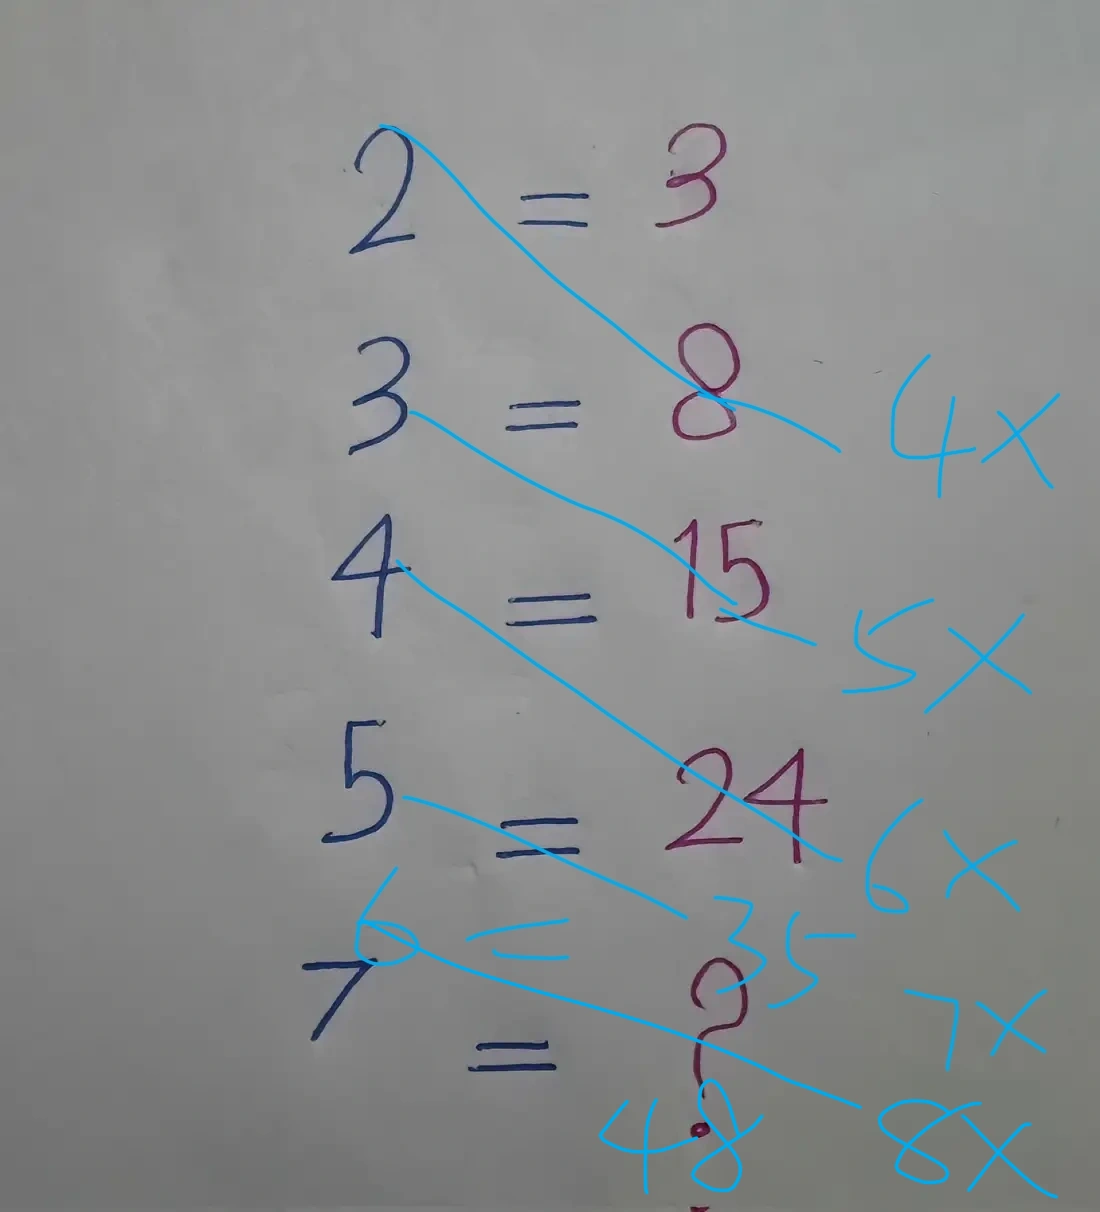 2 = 3
3 = 8
4x
4 = 15
5x
5 = 24
6x
6 = 35
7x
7 = ?
48
8x